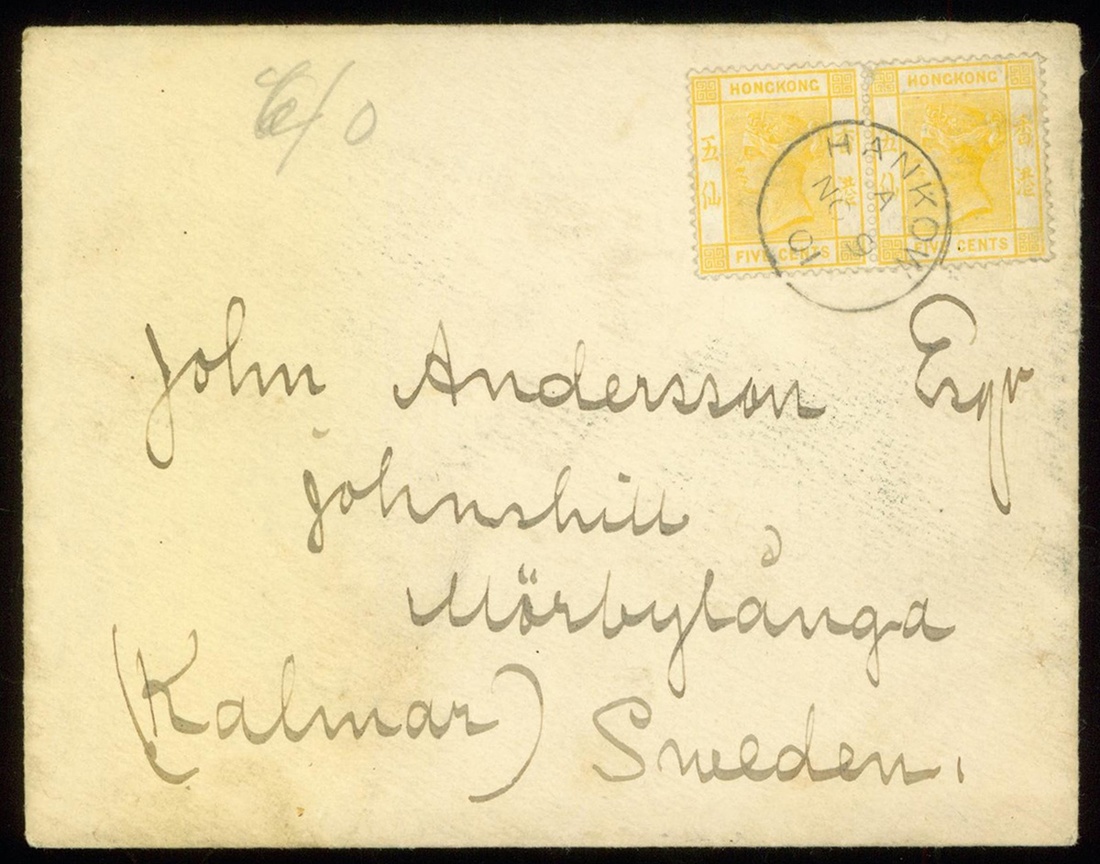 HONGKONG HONGKONG
五仙 香港 五仙 香港
FIVE CENTS FIVE CENTS
HANKOW
A
NO
01
John Andersson Esqr
Johnshill
Mörbylånga
(Kalmar) Sweden.